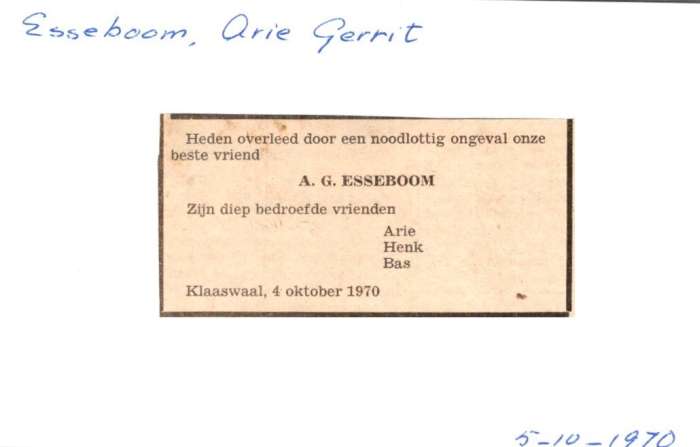 Esseboom, Arie Gerrit
Heden overleed door een noodlottig ongeval onze
beste vriend
A. G. ESSEBOOM
Zijn diep bedroefde vrienden
Arie
Henk
Bas
Klaaswaal, 4 oktober 1970
5-10-1970